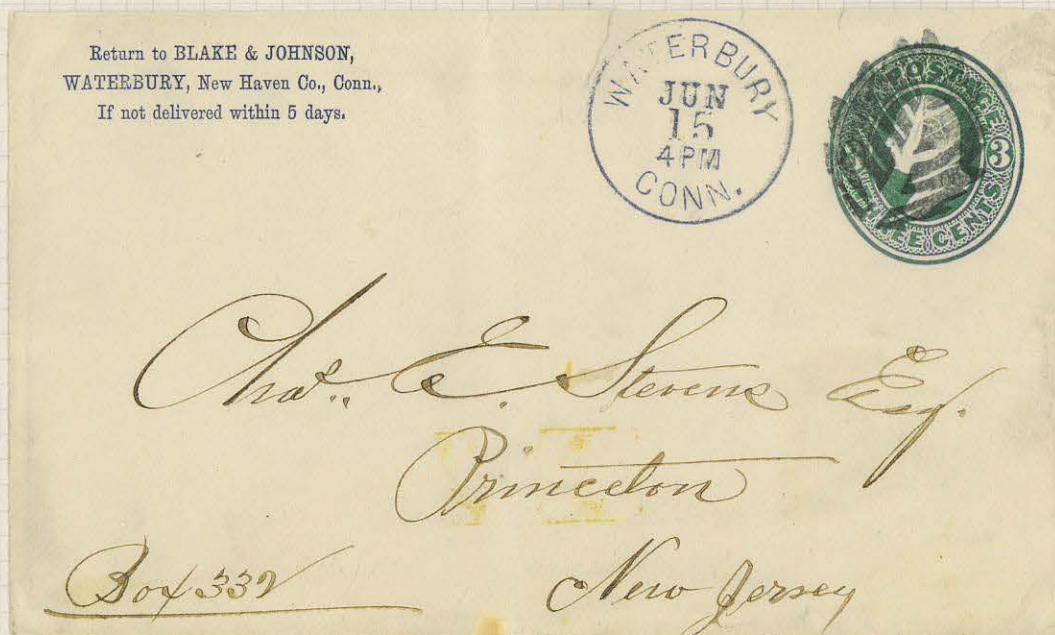 Return to BLAKE & JOHNSON,
WATERBURY, New Haven Co., Conn.,
If not delivered within 5 days.
WATERBURY
JUN
15
4 PM
CONN.
POSTAGE
3
CENTS
Chas. E. Stevens Esq.
Princeton
New Jersey
Box 332